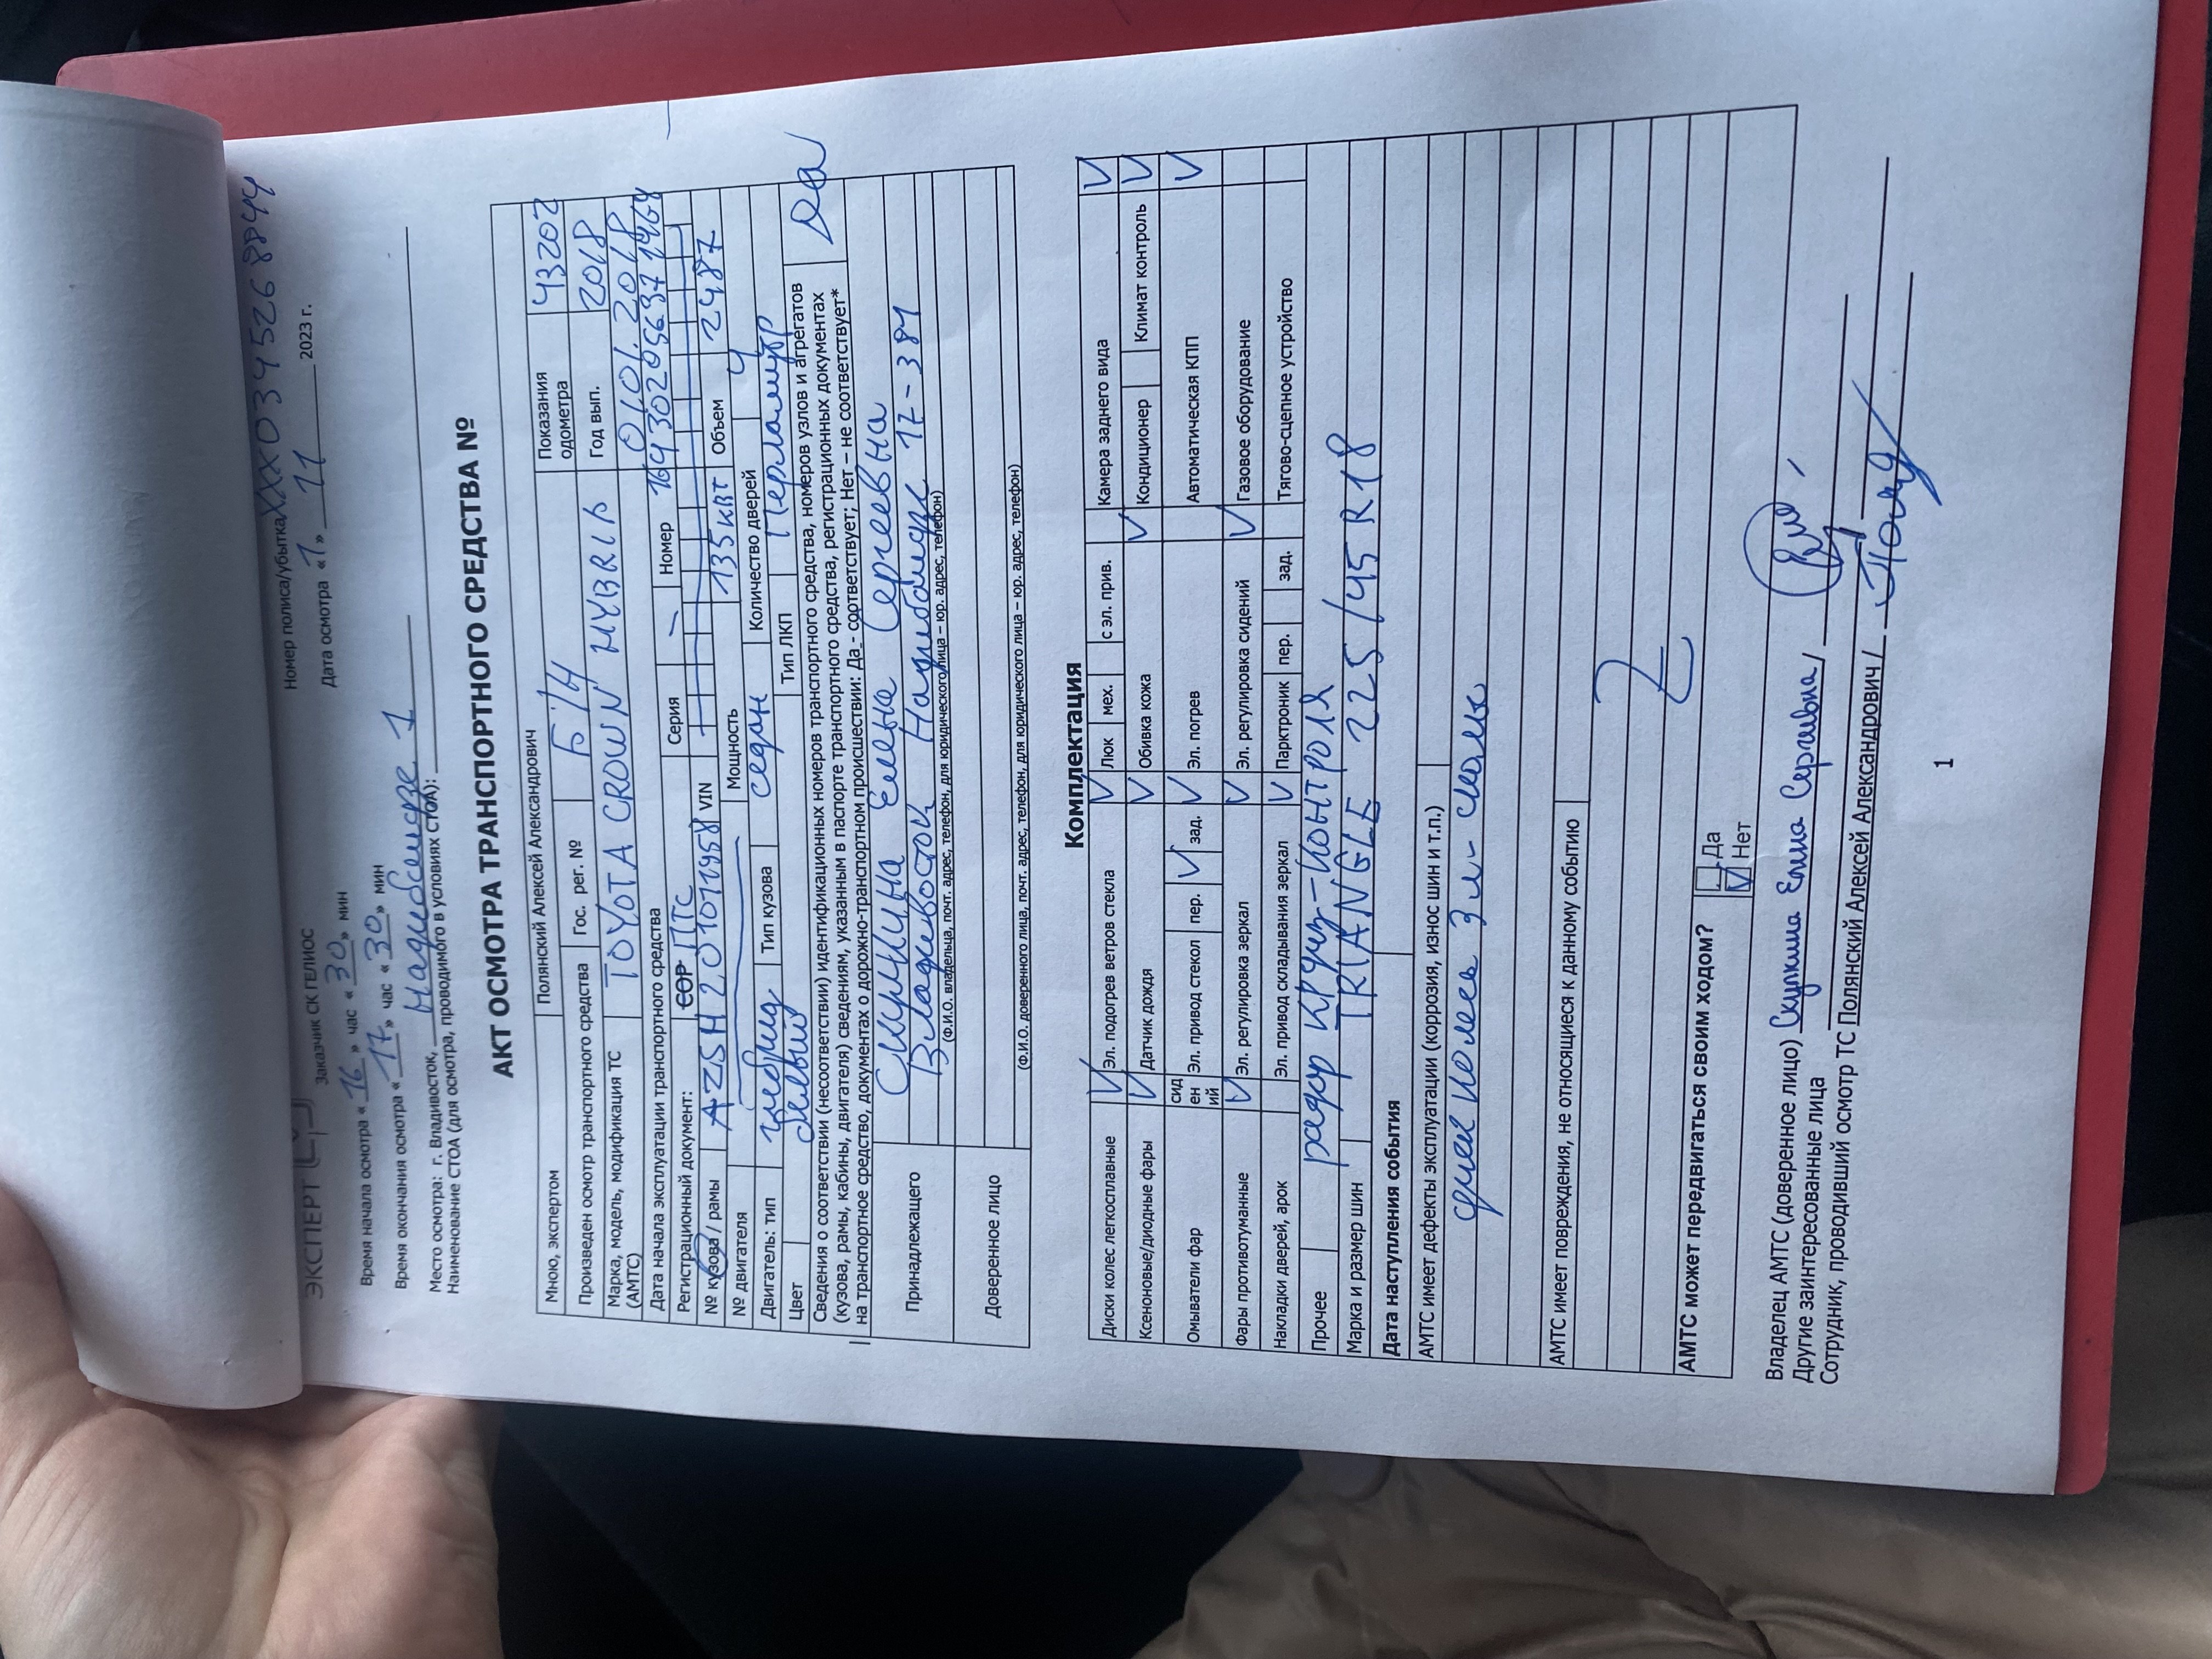 ЭКСПЕРТ
Заказчик СК ГЕЛИОС
Номер полиса/убытка XXX0345268844
Время начала осмотра «16» час «30» мин
Дата осмотра «1» 11 2023 г.
Время окончания осмотра «17» час «30» мин
Место осмотра: г. Владивосток, Надибаидзе 1
Наименование СТОА (для осмотра, проводимого в условиях СТОА):
АКТ ОСМОТРА ТРАНСПОРТНОГО СРЕДСТВА №
Мною, экспертом Полянский Алексей Александрович Показания одометра 43202
Произведен осмотр транспортного средства Гос. рег. № Б/Н Год вып. 2018
Марка, модель, модификация ТС (АМТС) TOYOTA CROWN HYBRID 01.01.2018
Дата начала эксплуатации транспортного средства
Регистрационный документ: СОР ПТС Серия — Номер 164302056971468
№ кузова / рамы AZSH201014958 VIN
№ двигателя Мощность 135 кВт Объем 2487
Двигатель: тип гибрид Тип кузова седан Количество дверей 4
Цвет белый Тип ЛКП Перламутр
Сведения о соответствии (несоответствии) идентификационных номеров транспортного средства, номеров узлов и агрегатов
(кузова, рамы, кабины, двигателя) сведениям, указанным в паспорте транспортного средства, регистрационных документах
на транспортное средство, документах о дорожно-транспортном происшествии: Да - соответствует; Нет – не соответствует* Да
Принадлежащего Скуркина Елена Сергеевна
Владивосток Надибаидзе 17-381
(Ф.И.О. владельца, почт. адрес, телефон, для юридического лица – юр. адрес, телефон)
Доверенное лицо
(Ф.И.О. доверенного лица, почт. адрес, телефон, для юридического лица – юр. адрес, телефон)
Комплектация
Диски колес легкосплавные V Эл. подогрев ветров стекла V Люк мех. с эл. прив. Камера заднего вида V
Ксеноновые/диодные фары V Датчик дождя V Обивка кожа V Кондиционер Климат контроль V
Омыватели фар сид ен ий Эл. привод стекол пер. V зад. V Эл. погрев Автоматическая КПП V
Фары противотуманные V Эл. регулировка зеркал V Эл. регулировка сидений V Газовое оборудование
Накладки дверей, арок Эл. привод складывания зеркал V Парктроник пер. зад. Тягово-сцепное устройство
Прочее радар круиз-контроля
Марка и размер шин TRIANGLE 225/45 R18
Дата наступления события
АМТС имеет дефекты эксплуатации (коррозия, износ шин и т.п.)
АМТС имеет повреждения, не относящиеся к данному событию
Z
АМТС может передвигаться своим ходом? Да
V Нет
Владелец АМТС (доверенное лицо) Елена Сергеевна /
Другие заинтересованные лица
Сотрудник, проводивший осмотр ТС Полянский Алексей Александрович /
1